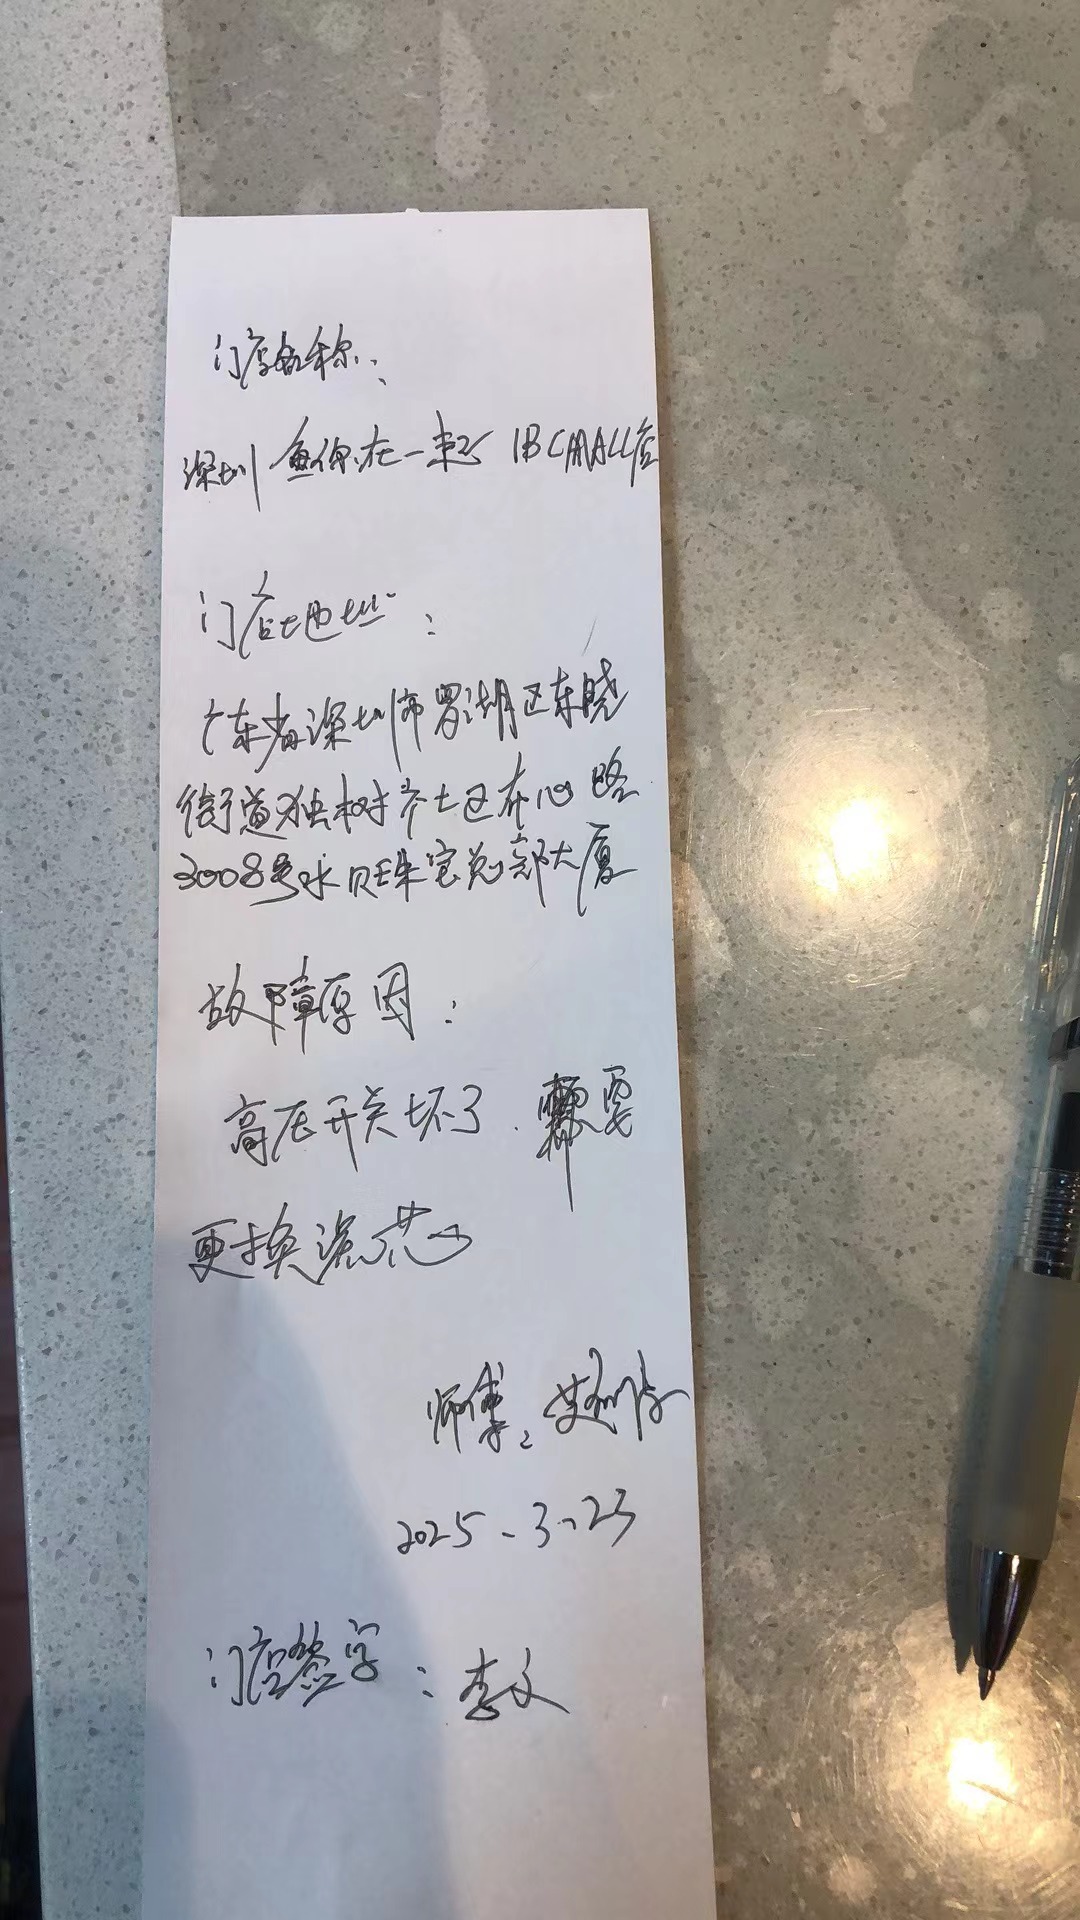 门店名称:
深圳鱼你在一起 IBCMALL店
门店地址:
广东省深圳市罗湖区东晓
街道独树齐士区布心路
3008号水贝珠宝总部大厦
故障原因:
高压开关坏了. 需要
更换滤芯
师傅:
2025-3-23
门店签字: 李文